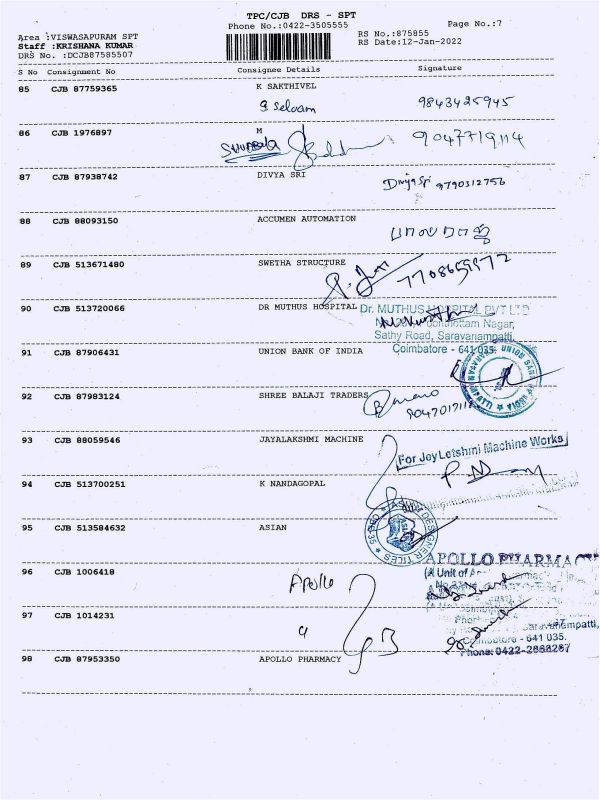 TPC/CJB DRS - SPT
Phone No.:0422-3505555
Page No.:7
Area :VISWASAPURAM SPT
Staff :KRISHANA KUMAR
DRS No. :DCJB87585507
RS No.:875855
RS Date:12-Jan-2022
S No Consignment No Consignee Details Signature
85 CJB 87759365 K SAKTHIVEL
g selvam 9843425945
86 CJB 1976897 M
9047719114
87 CJB 87938742 DIVYA SRI
Divya Sri 9790312756
88 CJB 88093150 ACCUMEN AUTOMATION
89 CJB 513671480 SWETHA STRUCTURE
7708659972
90 CJB 513720066 DR MUTHUS HOSPITAL
Dr. MUTHUS HOSPITAL PVT LTD
Nagar,
Sathy Road, Saravanampatti,
Coimbatore - 641 035.
91 CJB 87906431 UNION BANK OF INDIA
92 CJB 87983124 SHREE BALAJI TRADERS
93 CJB 88059546 JAYALAKSHMI MACHINE
For JoyLetshmi Machine Works
94 CJB 513700251 K NANDAGOPAL
95 CJB 513584632 ASIAN
96 CJB 1006418
Apollo
APOLLO PHARMACY
(A Unit of
97 CJB 1014231
Saravanampatti,
Coimbatore - 641 035.
Phone: 0422-2666267
98 CJB 87953350 APOLLO PHARMACY